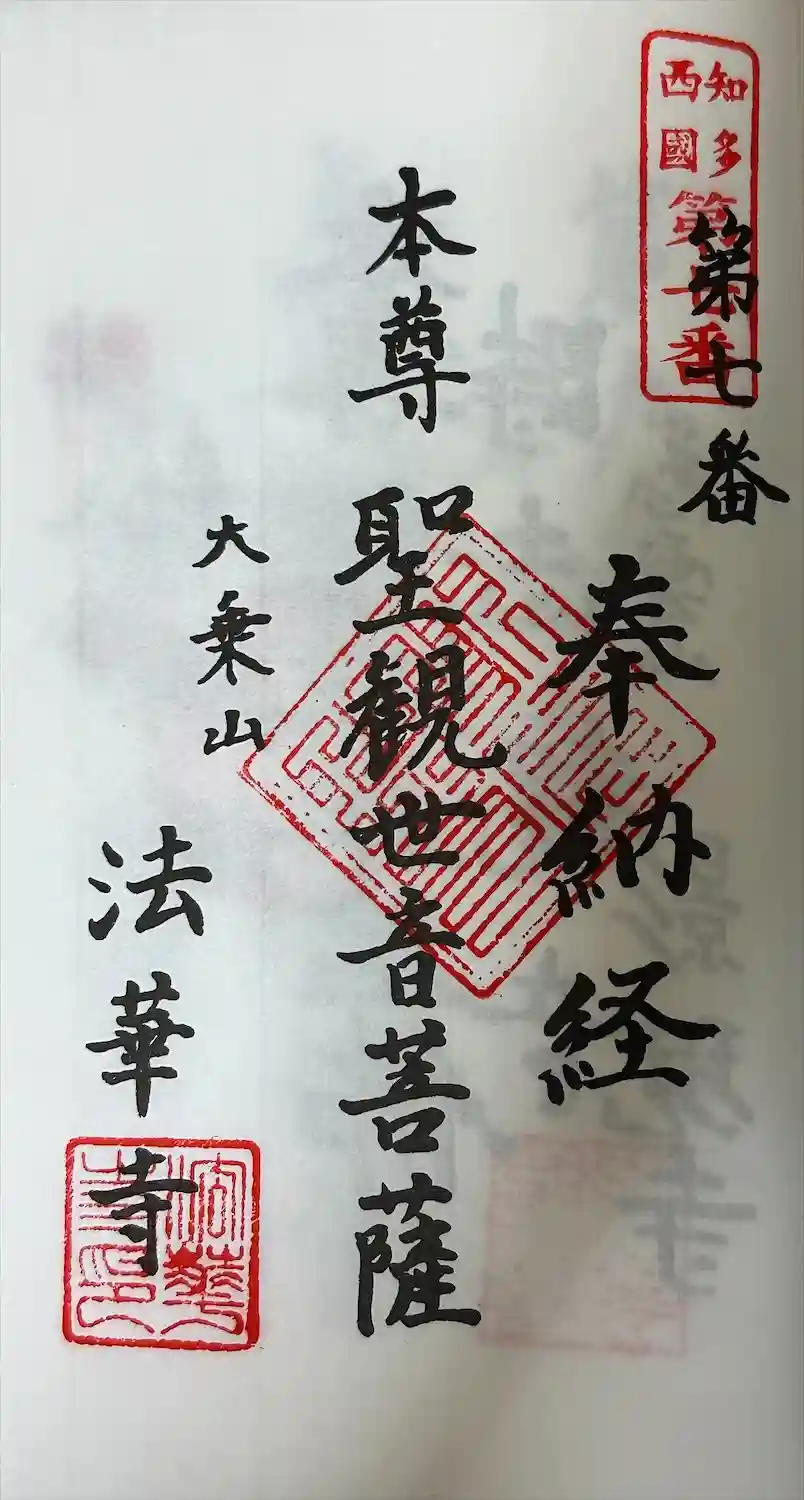 知多
西國
第七番
第七番
奉納経
本尊 聖観世音菩薩
大乗山
法華寺
法華
寺印